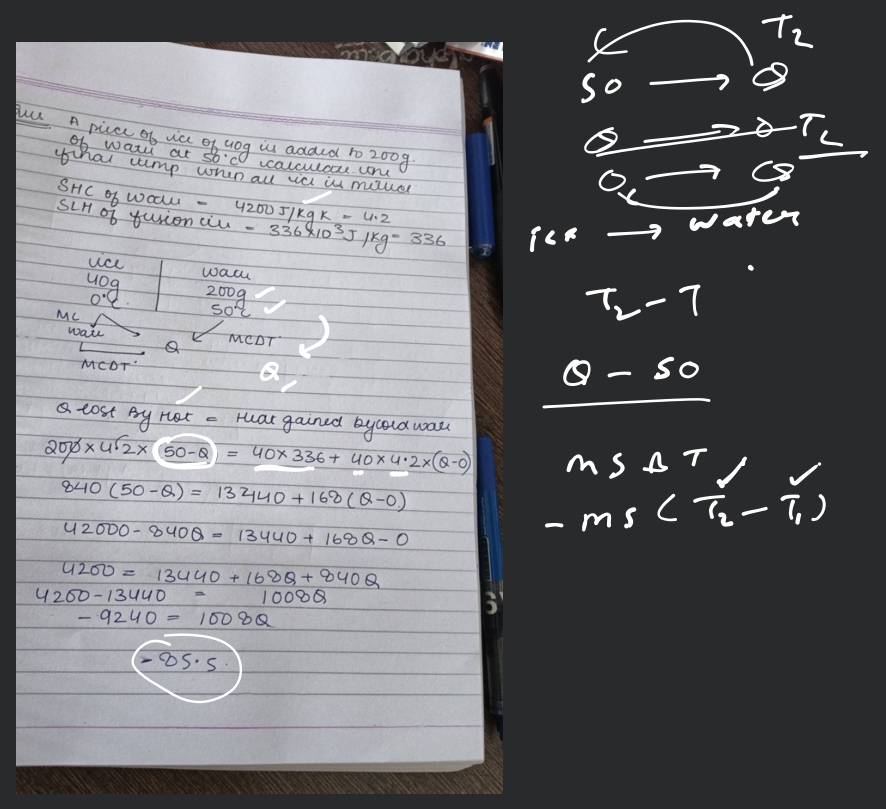 A piece of ice of 40g is added to 200g
of water at 50°c calculate the
final temp when all ice is melted
SHC of water = 4200 J/kg K = 4.2
SLH of fusion ice = 336×10³J/kg = 336
ice water
40g 200g
0°C 50°C
MC
water Q MCDT
MCDT
Q
Q lost By Hot = Heat gained by cold water
200×4.2× (50-Q) = 40×336+ 40×4.2×(Q-0)
840(50-Q) = 13440+168(Q-0)
42000-840Q = 13440+168Q-0
4200 = 13440+168Q+840Q
4200-13440 = 1008Q
-9240 = 1008Q
-85.5
T2
50 → Q
Q → T2
0 → Q
ice → water
T2 - T
Q - 50
ms Δ T
- ms (T2 - T1)